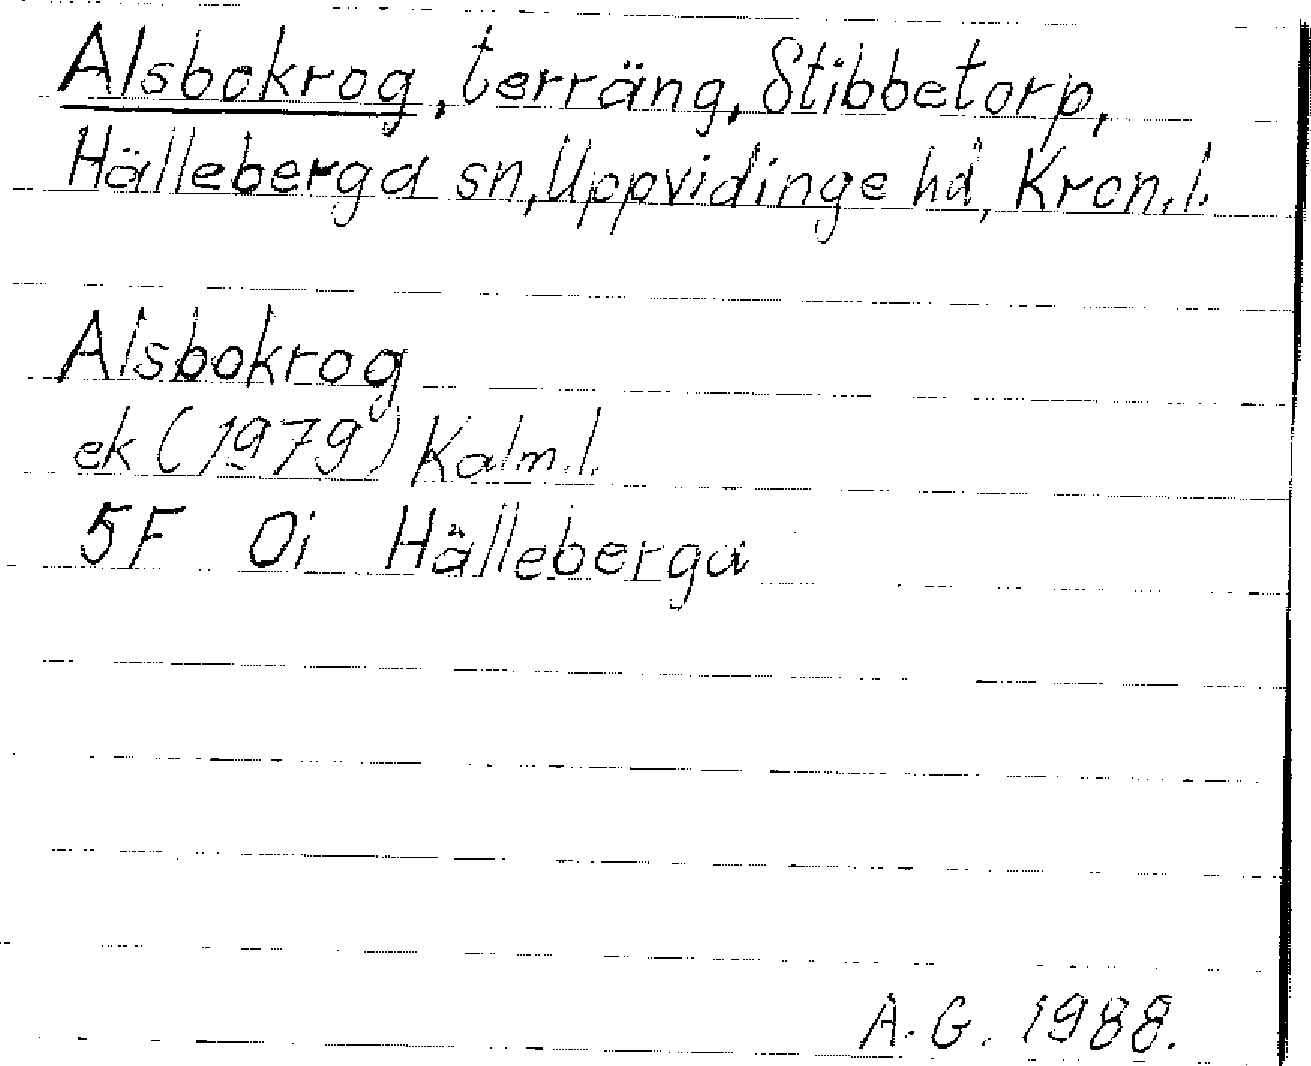 Alsbokrog, terräng, Stibbetorp,
Hälleberga sn, Uppvidinge hd, Kron.l.
Alsbokrog
ek (1979) Kalm.l.
5F 0i Hälleberga
A.G. 1988.